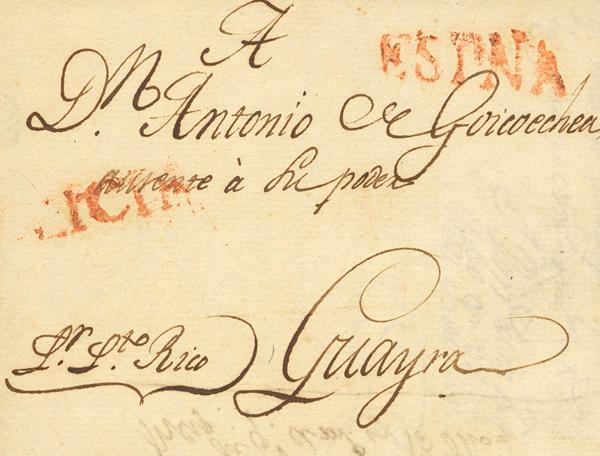 A
ESPNA
Dn. Antonio de Goicoechea
Ausente à Su poder
Pr. Pto Rico
Guayra